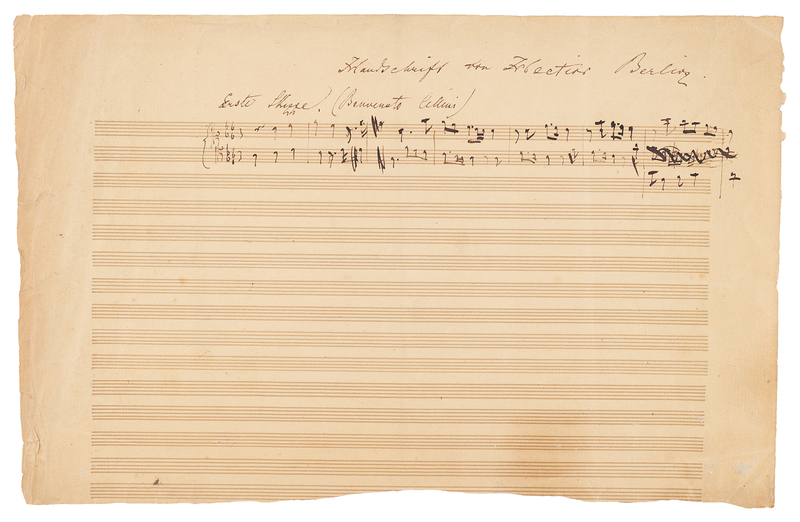 Handschrift von Hector Berlioz.
Erste Skizze. (Benvenuto Cellini)